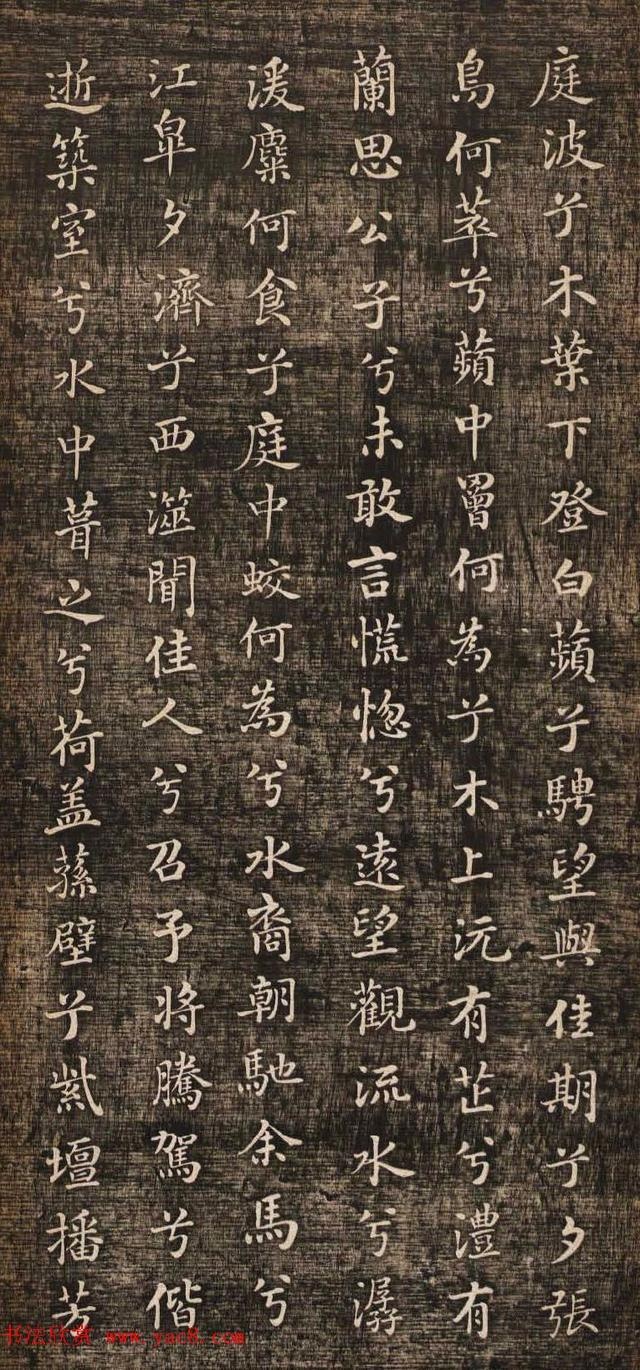 庭波兮木葉下登白蘋兮騁望與佳期兮夕張
鳥何萃兮蘋中罾何為兮木上沅有芷兮澧有
蘭思公子兮未敢言慌惚兮遠望觀流水兮潺
湲麋何食兮庭中蛟何為兮水裔朝馳余馬兮
江皋夕濟兮西澨聞佳人兮召予將騰駕兮偕
逝築室兮水中葺之兮荷盖蓀壁兮紫壇播芳
书法欣赏 www.yac8.com